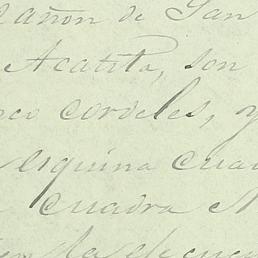 cañon de San
Acatita, son
cordeles, y
esquina cua
cuadra N
de